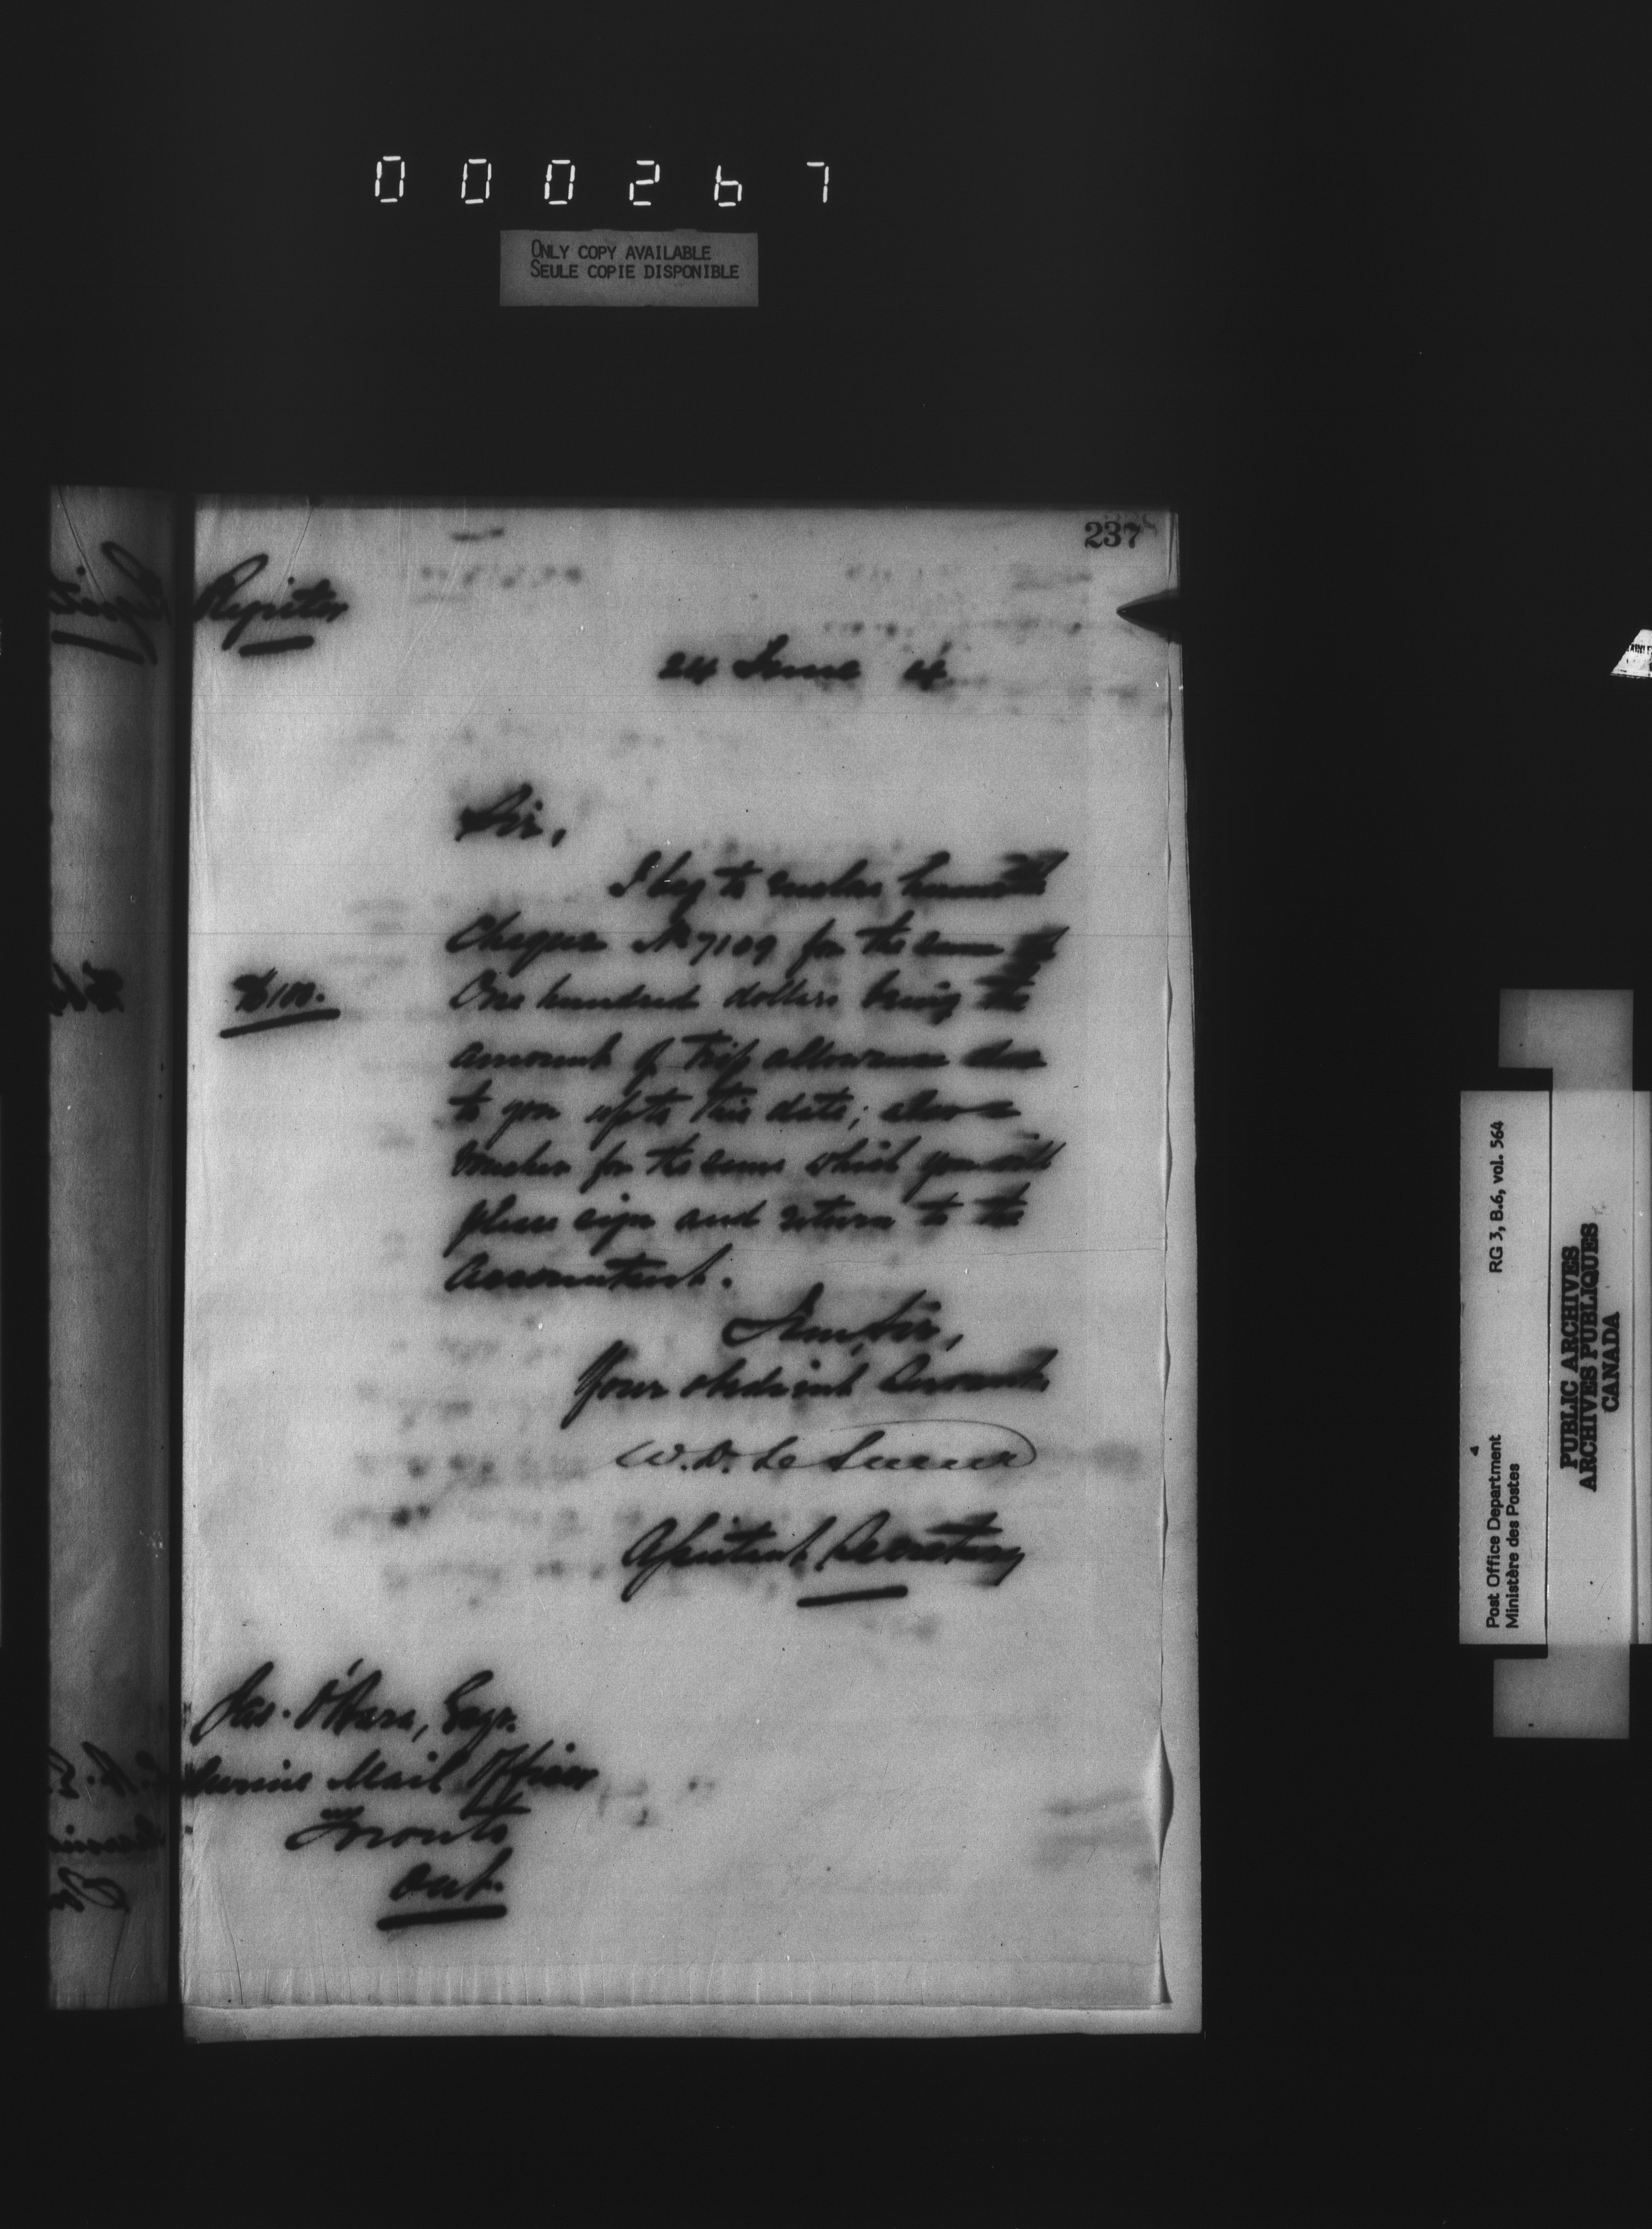 000267
ONLY COPY AVAILABLE
SEULE COPIE DISPONIBLE
237
Register
24 June 4
Sir,
I beg to enclose herewith
Cheque No 7109 for the sum of
$100.
One hundred dollars being the
amount of trip allowance due
to you upto this date; also a
voucher for the same which you will
please sign and return to the
Accountant.
I am, Sir,
Your obedient Servant
W.D. Le Sueur
Assistant Secretary
Jas. O'Hara, Esqr.
Marine Mail Officer
Toronto
Ont.
Post Office Department
Ministère des Postes
4
RG 3, B.6, vol. 564
PUBLIC ARCHIVES
ARCHIVES PUBLIQUES
CANADA